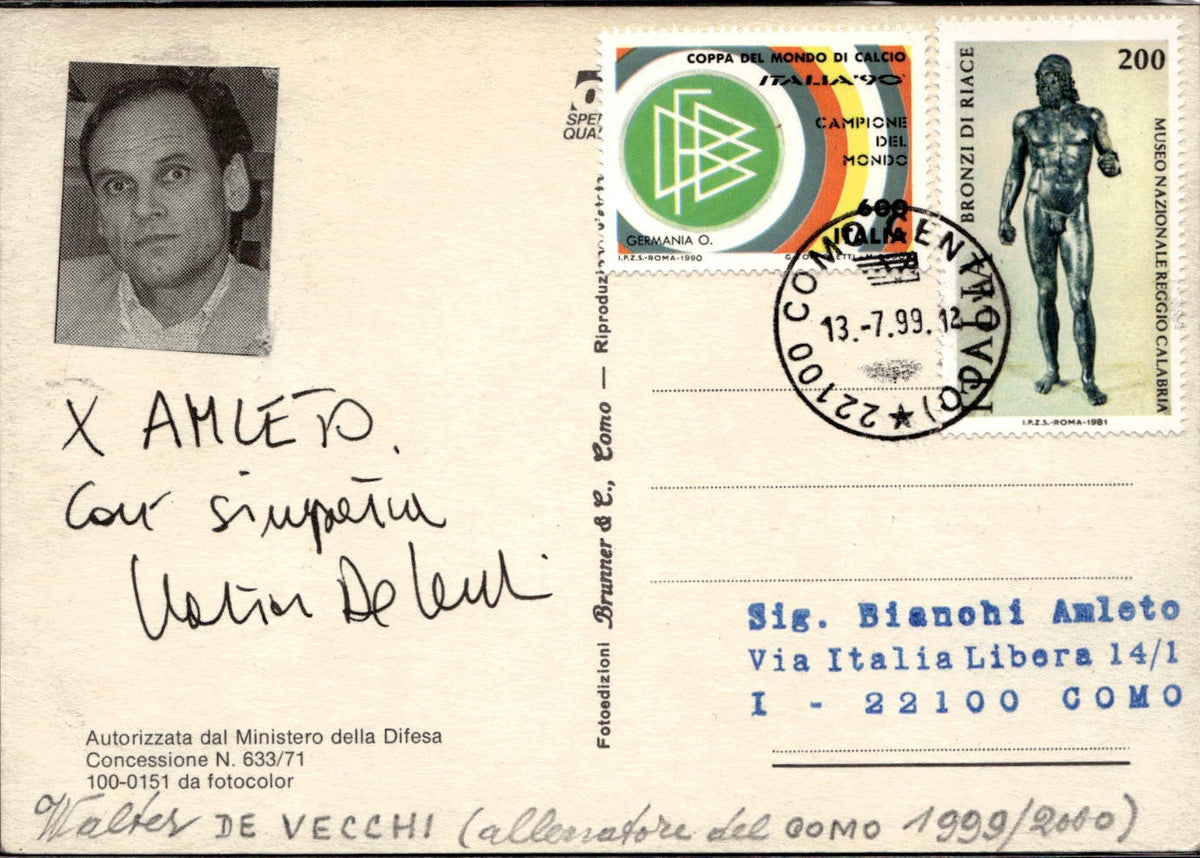 X AMLETO.
Con simpatia
Walter De Vecchi
Autorizzata dal Ministero della Difesa
Concessione N. 633/71
100-0151 da fotocolor
Walter DE VECCHI (allenatore del COMO 1999/2000)
Fotoedizioni Brunner & C., Como —
COPPA DEL MONDO DI CALCIO
ITALIA'90
CAMPIONE
DEL
MONDO
600
ITALIA
GERMANIA O.
I.P.Z.S.-ROMA-1990
200
BRONZI DI RIACE
MUSEO NAZIONALE REGGIO CALABRIA
I.P.Z.S.-ROMA-1981
22100 COMO CENTRO
13.-7.99.12
Sig. Bianchi Amleto
Via Italia Libera 14/1
I - 22100 COMO